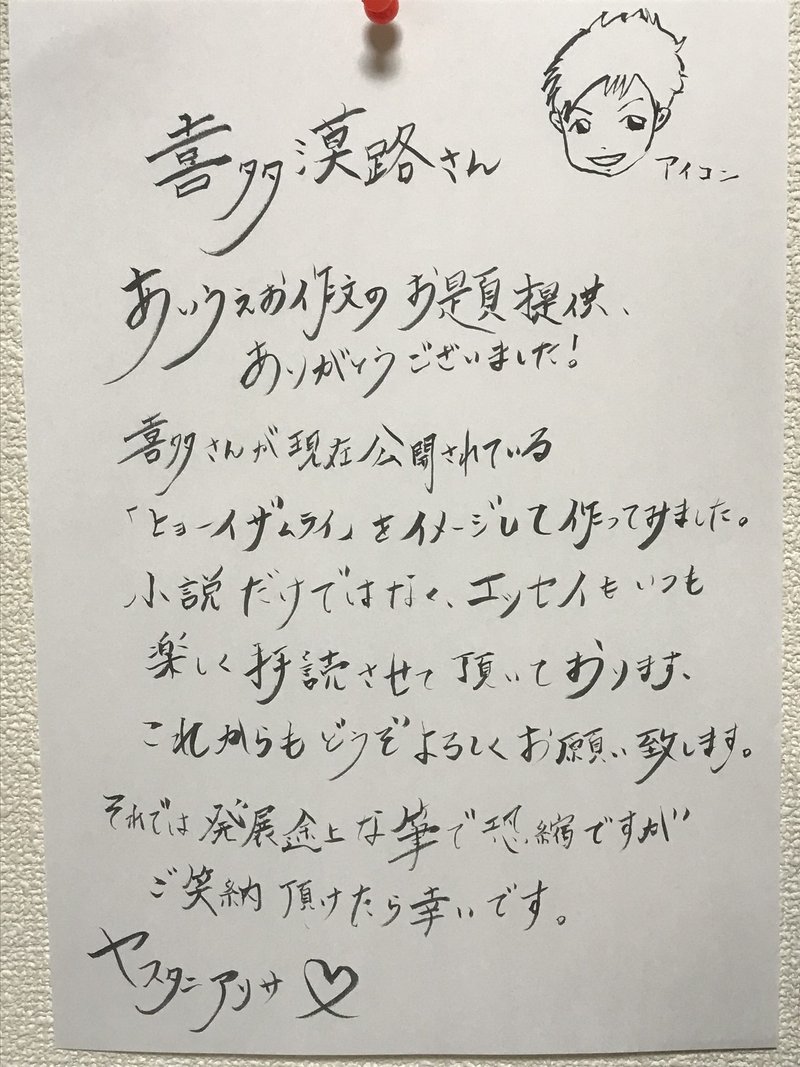 喜多漠路さん
アイコン
あいうえお作文のお題提供、
ありがとうございました！
喜多さんが現在公開されている
「ヒョーイザムライ」をイメージして作ってみました。
小説だけではなく、エッセイもいつも
楽しく拝読させて頂いております、
これからもどうぞよろしくお願い致します。
それでは発展途上な筆で恐縮ですが
ご笑納頂けたら幸いです。
ヤスタニアリサ♡